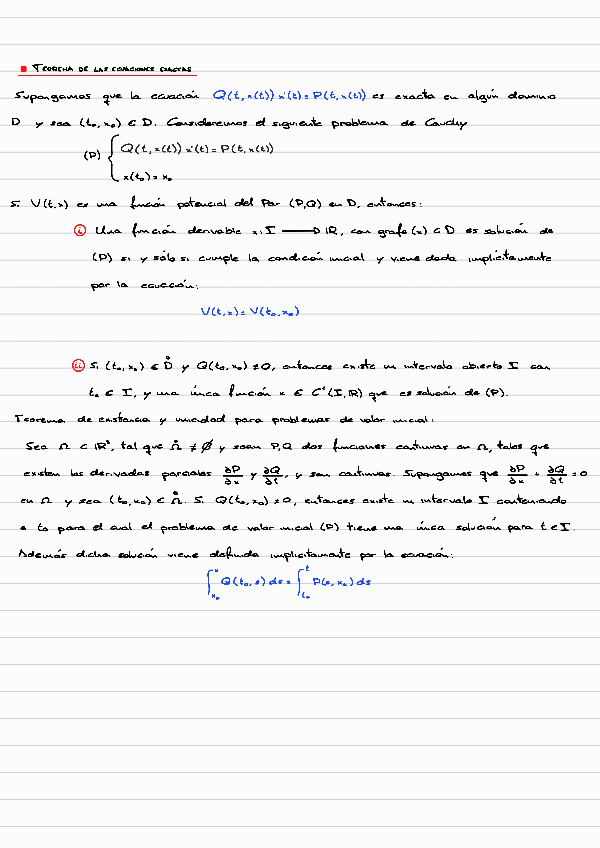 TEOREMA DE LAS ECUACIONES EXACTAS
Supongamos que la ecuación Q(t,x(t))x'(t)=P(t,x(t)) es exacta en algún dominio
D y sea (t₀,x₀) ∈ D. Consideremos el siguiente problema de Cauchy
(P) { Q(t,x(t))x'(t)=P(t,x(t))
x(t₀)=x₀
Si V(t,x) es una función potencial del Par (P,Q) en D, entonces:
i Una función derivable x: I → ℝ, con grafo(x) ⊂ D es solución de
(P) si y sólo si cumple la condición inicial y viene dada implícitamente
por la ecuación:
V(t,x)=V(t₀,x₀)
ii Si (t₀,x₀) ∈ D̊ y Q(t₀,x₀) ≠ 0, entonces existe un intervalo abierto I con
t₀ ∈ I, y una única función x ∈ C¹(I,ℝ) que es solución de (P).
Teorema de existencia y unicidad para problemas de valor inicial:
Sea Ω ⊂ ℝ², tal que Ω̊ ≠ ∅ y sean P,Q dos funciones continuas en Ω, tales que
existen las derivadas parciales ∂P/∂x y ∂Q/∂t, y son continuas. Supongamos que ∂P/∂x + ∂Q/∂t = 0
en Ω y sea (t₀,x₀) ∈ Ω̊. Si Q(t₀,x₀) ≠ 0, entonces existe un intervalo I conteniendo
a t₀ para el cual el problema de valor inicial (P) tiene una única solución para t ∈ I.
Además dicha solución viene definida implícitamente por la ecuación:
∫_{x₀}^{x} Q(t₀,s) ds = ∫_{t₀}^{t} P(s,x₀) ds